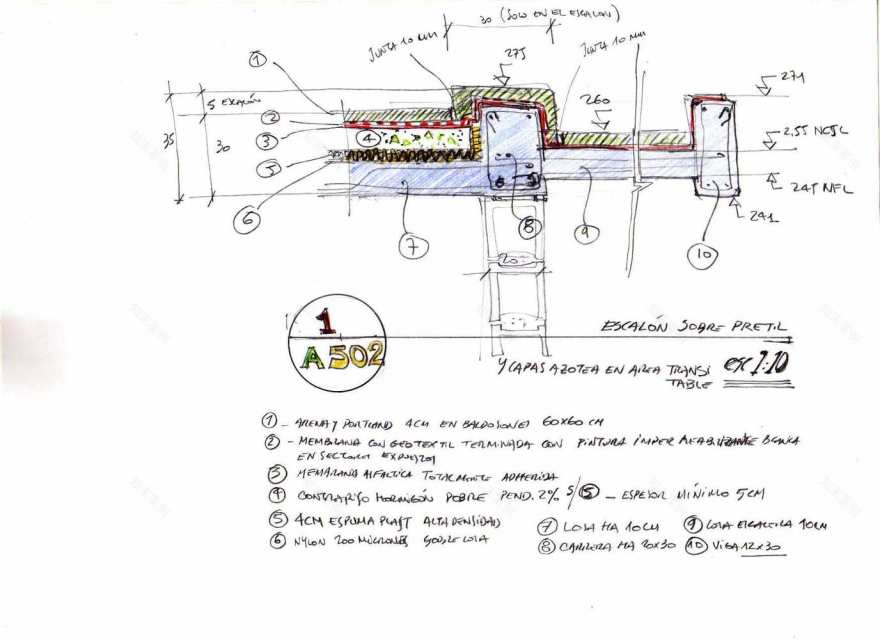 30 (SOLO EN EL ESCALON)
JUNTA 10 mm
275
JUNTA 10 mm
271
1
5 ESCALÓN
2
3
4
5
6
35
30
260
2,55 NCSL
245 NFL
241
7
8
9
10
20
1
A 502
ESCALÓN SOBRE PRETIL
Y CAPAS AZOTEA EN AREA TRANSI
TABLE
esc 1:10
1 - ARENA Y PORTLAND 4CM EN BALDOSONES 60X60 CM
2 - MEMBRANA CON GEOTEXTIL TERMINADA CON PINTURA IMPERMEABILIZANTE BLANCA
EN SECTORES EXPUESTOS
3 MEMBRANA ASFALTICA TOTALMENTE ADHERIDA
4 CONTRAPISO HORMIGÓN POBRE PEND. 2% S/ 5 - ESPESOR MÍNIMO 5CM
5 4CM ESPUMA PLAST ALTA DENSIDAD
6 NYLON 200 MICRONES SOBRE LOSA
7 LOSA HA 10CM
8 CARRERA HA 20X30
9 LOSA ESCALERA 10CM
10 VIGA 12X30